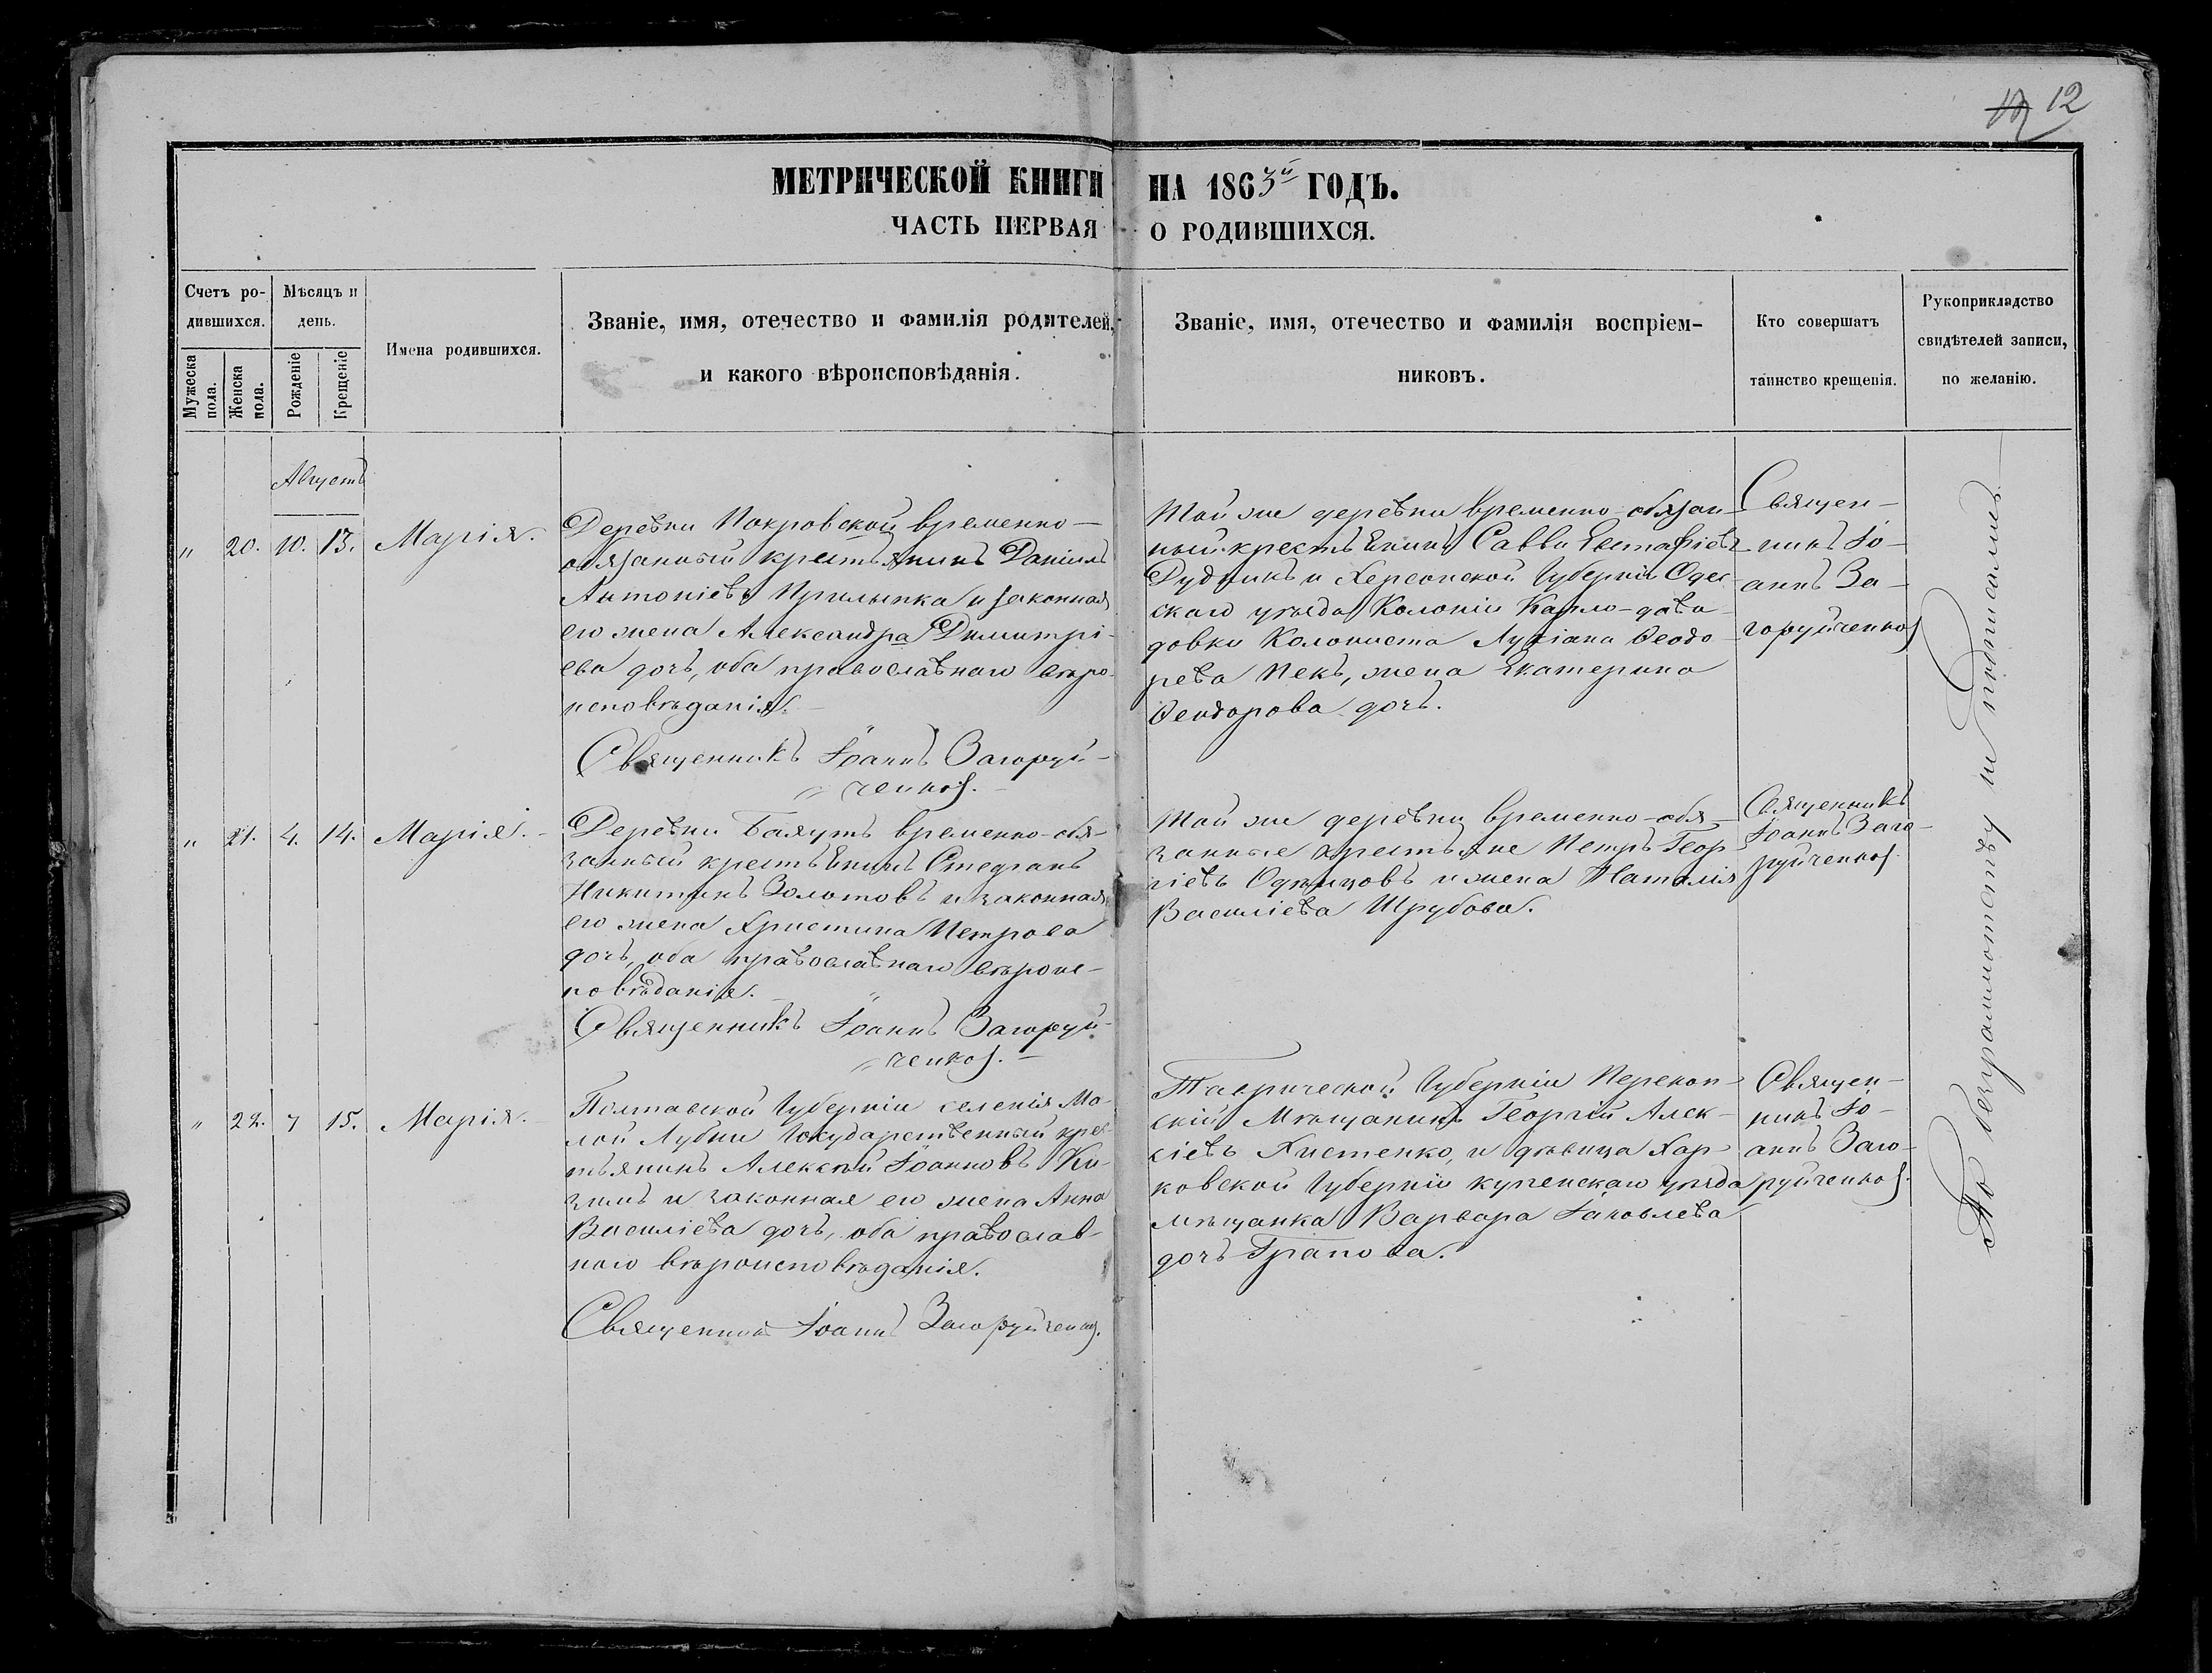 12
МЕТРИЧЕСКОЙ КНИГИ НА 1863й ГОДЪ.
ЧАСТЬ ПЕРВАЯ О РОДИВШИХСЯ.
Счетъ ро-
дившихся.
Мужеска
пола.
Женска
пола.
Мѣсяцъ и
день.
Рожденіе
Крещеніе
Имена родившихся.
Званіе, имя, отечество и фамилія родителей,
и какого вѣроисповѣданія.
Званіе, имя, отечество и фамилія воспріем-
никовъ.
Кто совершатъ
таинство крещенія.
Рукоприкладство
свидѣтелей записи,
по желанію.
Августъ
" 20. 10. 13. Марія.
Деревни Покровской временно-
обязанный крестьянинъ Даніилъ
Антоніевъ и законная
его жена Александра Димитрі-
ева дочь, оба православнаго вѣро-
исповѣданія.
Священникъ Іоаннъ Загоруй-
ченко.
Той же деревни временно-обязан-
ный крестьянинъ Савва Евстафіевъ
Дудникъ и Херсонской Губерніи Одес-
скаго уѣзда Колоніи
Колониста Ѳеодо-
рева Пекъ, жена Екатерина
Ѳеодорова дочь.
Священ-
никъ Іо-
аннъ За-
горуйченко
" 21. 4. 14. Марія.
Деревни Баяутъ временно-обя-
занный крестьянинъ Стефанъ
Никитинъ Золотовъ и законная
его жена Христина Петрова
дочь, оба православнаго вѣроис-
повѣданія.
Священникъ Іоаннъ Загоруй-
ченко.
Той же деревни временно-обя-
занные крестьяне Петръ Геор-
гіевъ Одинцовъ и жена Наталія
Василіева Шрубова.
Священникъ
Іоаннъ Заго-
руйченко.
" 22. 7 15. Марія.
Полтавской Губерніи селенія Ма-
лой Лубни Государственный крес-
тьянинъ Алексѣй Іоанновъ Ки-
зимъ и законная его жена Анна
Василіева дочь, оба православ-
наго вѣроисповѣданія.
Священникъ Іоаннъ Загоруйченко.
Таврической Губерніи Перекоп-
скій Мѣщанинъ Георгій Алек-
сіевъ Хистенко, и дѣвица Хар-
ковской Губерніи купенскаго уѣзда
мѣщанка Варвара Іаковлева
дочь Грапова.
Священ-
никъ Іо-
аннъ Заго-
руйченко.
По безграммотству не подписались.